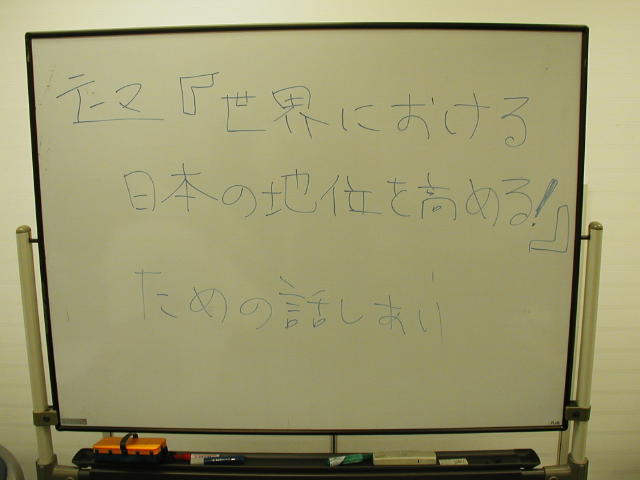 テーマ『世界における
日本の地位を高める!』
ための話しあい